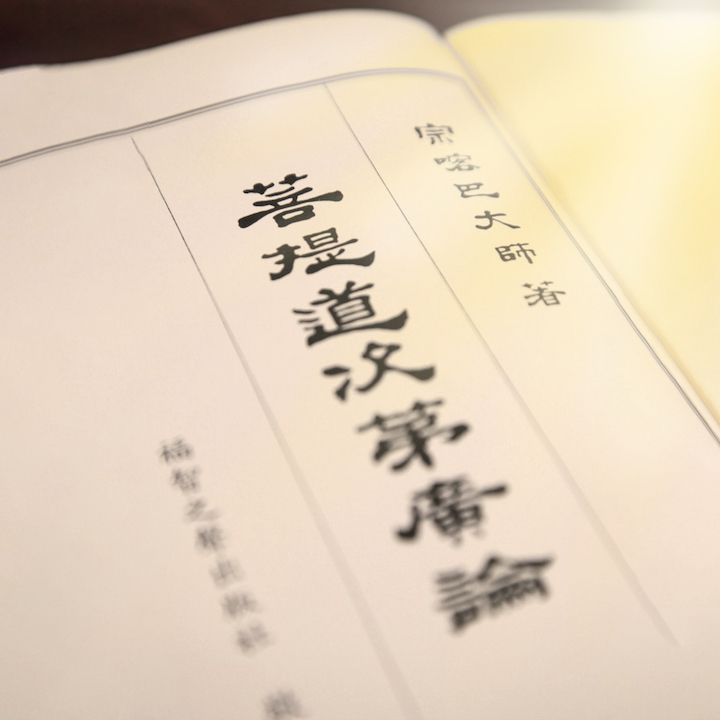 宗喀巴大師 著
菩提道次第廣論
福智之聲出版社